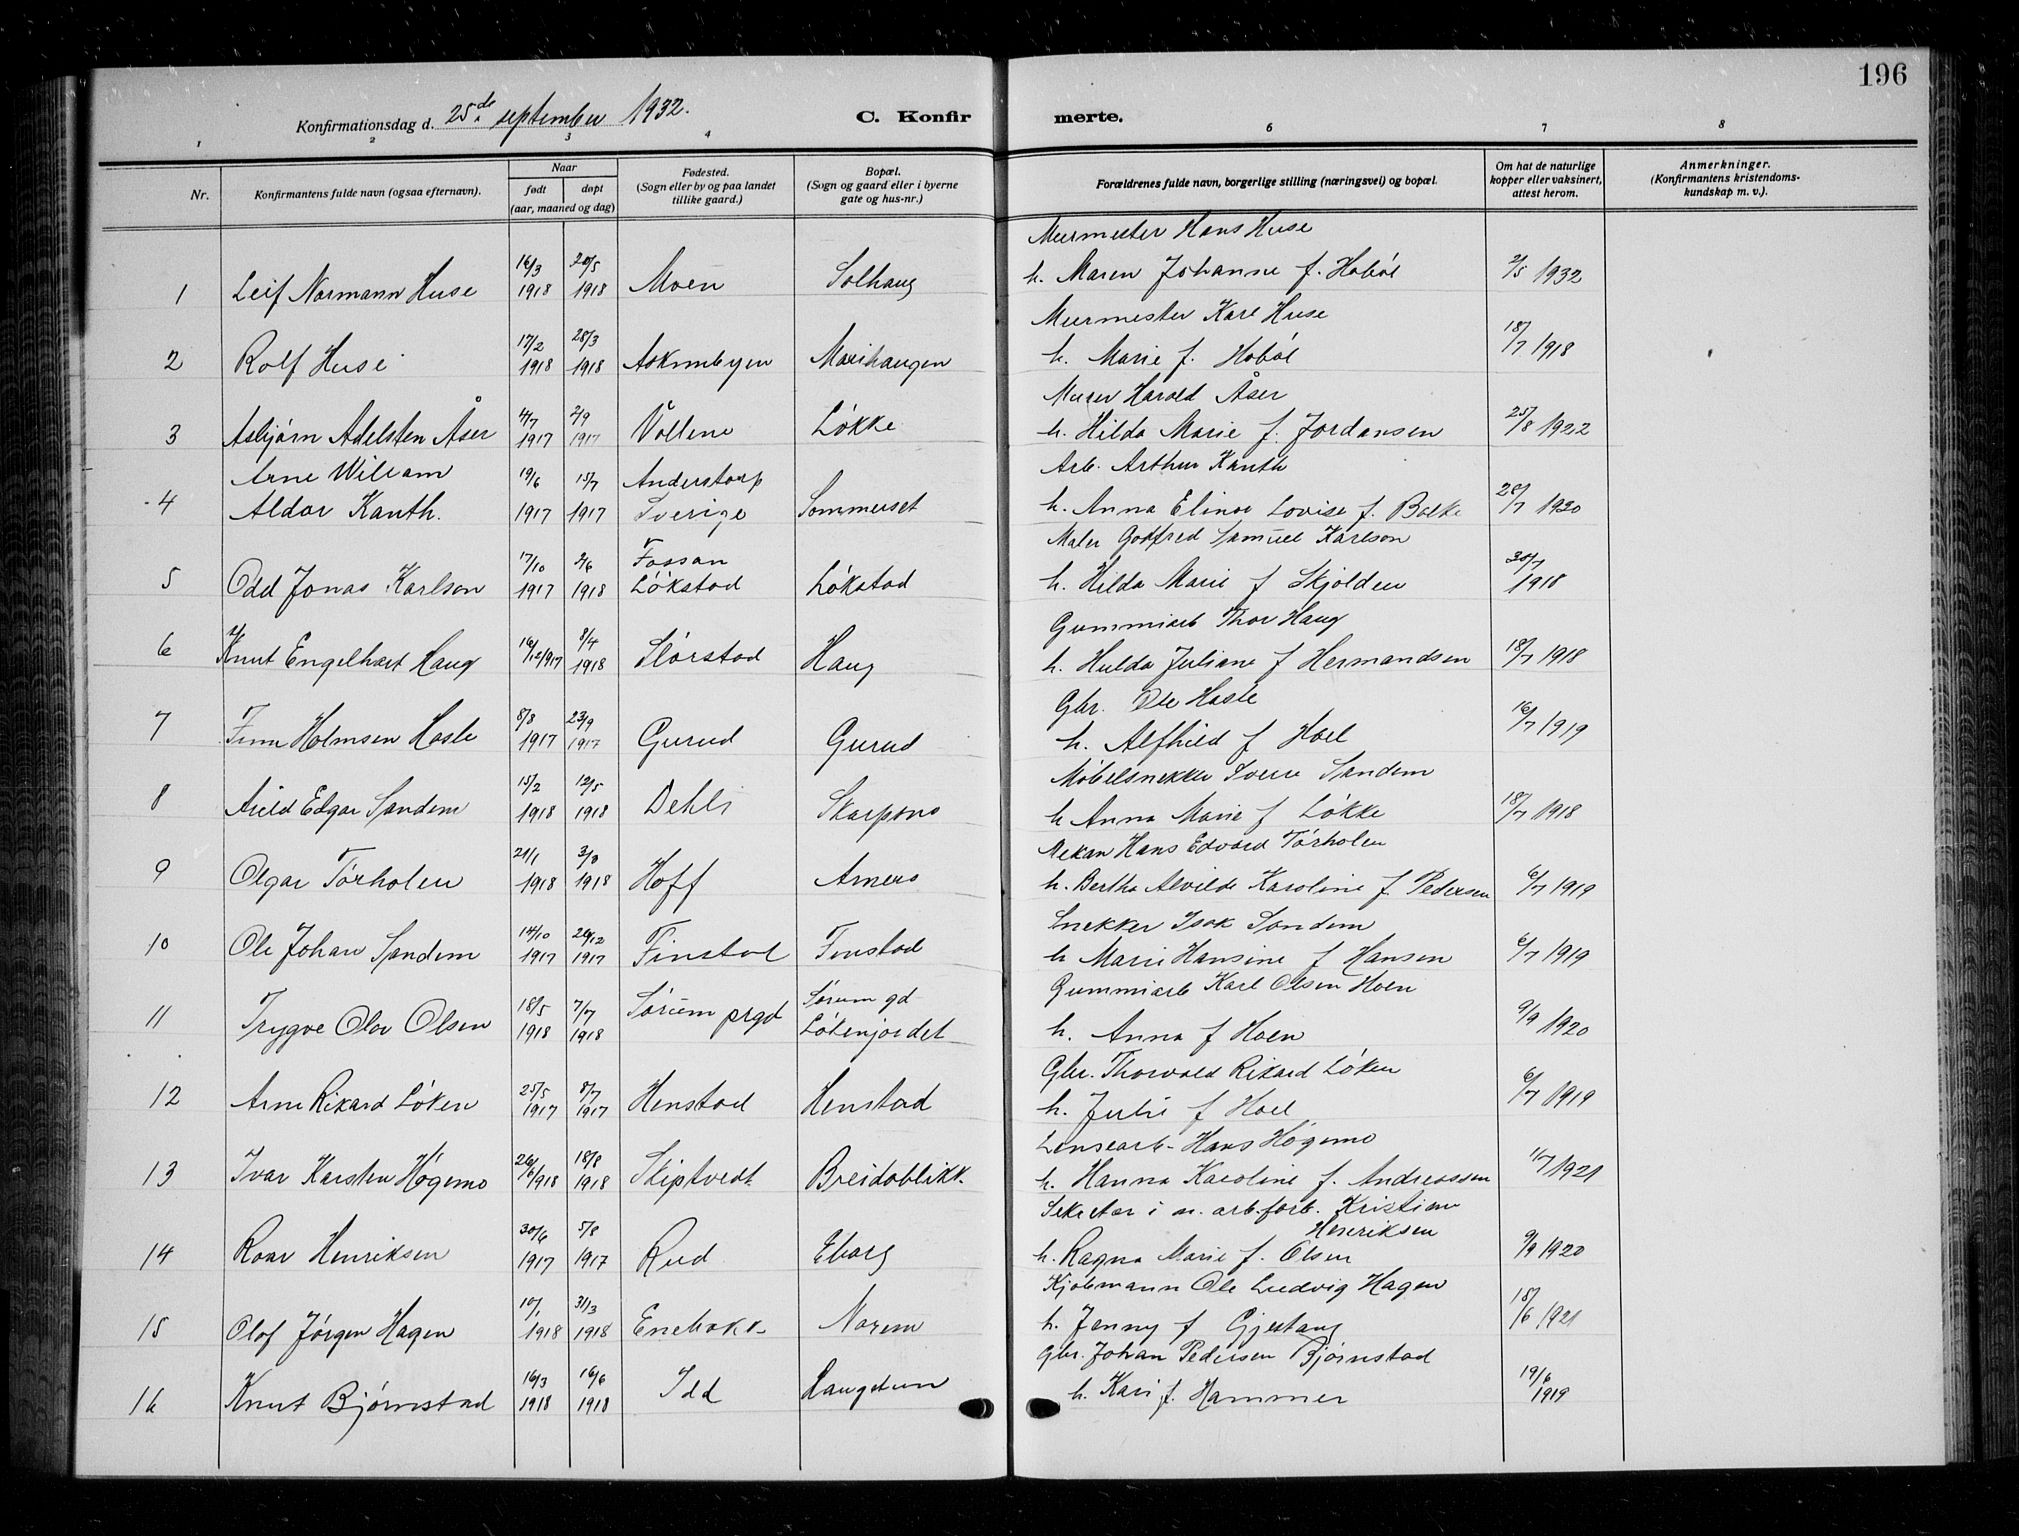 196
Konfirmationsdag d. 25de september 1932.
C. Konfir merte.
1 2 3 4 6 7 8
Nr.
Konfirmantens fulde navn (ogsaa efternavn).
Naar
født døpt
(aar, maaned og dag)
Fødested.
(Sogn eller by og paa landet
tillike gaard.)
Bopæl.
(Sogn og gaard eller i byerne
gate og hus-nr.)
Forældrenes fulde navn, borgerlige stilling (næringsvei) og bopæl.
Om hat de naturlige
kopper eller vaksinert,
attest herom.
Anmerkninger.
(Konfirmantens kristendoms-
kundskap m. v.).
Murmester Hans Huse
1 Leif Normann Huse 16/3 1918 20/5 1918 Moen Solhaug h. Maren Johanne f. Hobøl 2/5 1932
Murmester Karl Huse
2 Rolf Huse 17/2 1918 28/3 1918 Askimbyen Marihaugen h. Marie f. Hobøl 18/7 1918
Murer Harald Åser
3 Asbjørn Adelsten Åser 4/7 1917 2/9 1917 Vollene Løkke h. Hilda Marie f. Jordansen 25/8 1922
Arne William Anderstorp Arb. Arthur Kanth
4 Aldor Kanth. 19/6 1917 15/7 1917 Sverige Sommerset h. Anna Elinor Lovise f. 28/7 1920
Maler Godfred Samuel Karlson
Fossan
5 Odd Jonas Karlson 17/10 1917 2/6 1918 Løkstad Løkstad h. Hilda Marie f Skjolden 30/7 1918
Gummiarb Thor Haug
6 Knut Engelhart Haug 16/12 1917 8/4 1918 Slørstad Haug h. Hulda Juliane f Hermandsen 18/7 1918
Gbr. Ole Hasle
7 Finn Holmsen Hasle 8/8 1917 23/9 1917 Gurud Gurud h. Alfhild f Hoel 16/7 1919
Møbelsnekker Sverre Sandem
8 Arild Edgar Sandem 15/2 1918 12/5 1918 Dehli Skarpsno h Anna Marie f Løkke 18/7 1918
Mekan Hans Edvard Tørholen
9 Olgar Tørholen 21/1 1918 3/3 1918 Hoff Arnero h. Bertha Alvilde Karoline f. Pedersen 6/7 1919
Snekker Isak Sandem
10 Ole Johan Sandem 14/10 1917 26/12 1917 Finstad Finstad h Marie Hansine f Hansen 6/7 1919
Gummiarb Karl Olsen Hoen
Sørum gd
11 Trygve Olav Olsen 18/5 1918 7/7 1918 Sørum prgd Løkenjordet h. Anna f Hoen 9/9 1920
Gbr. Thorvald Rikard Løken
12 Arne Rikard Løken 25/5 1917 8/7 1917 Henstad Henstad h. Julie f Hoel 6/7 1919
Lensearb. Hans Høgemo
13 Ivar Karsten Høgemo 26/6 1918 18/8 1918 Skiptvedt Breidablikk. h. Hanna Karoline f. Andreassen 11/7 1921
Sekretær i n. arb.forb. Kristian
Henriksen
14 Roar Henriksen 30/6 1917 5/8 1917 Rud Eborg h. Ragna Marie f. Olsen 9/9 1920
Kjøbmann Ole Ludvig Hagen
15 Olof Jørgen Hagen 10/1 1918 31/3 1918 Enebakk Narem h. Jenny f Gjestang 18/6 1921
Gbr. Johan Pedersen Bjørnstad
16 Knut Bjørnstad 16/3 1918 16/6 1918 Idd Haugstun h. Kari f. Hammer 19/6 1919